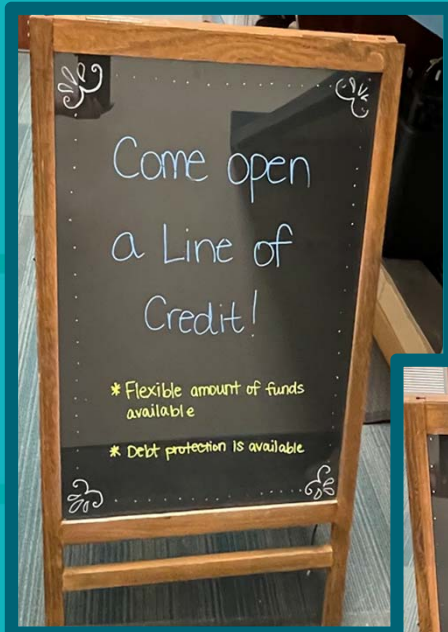 Come open
a Line of
Credit!
* Flexible amount of funds
available
* Debt protection is available